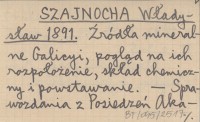 SZAJNOCHA Włady-
sław 1891. Źródła mineral-
ne Galicyi, pogląd na ich
rozpołożenie, skład chemicz-
ny i powstawanie. — Spra-
wozdania z Posiedzeń Aka-